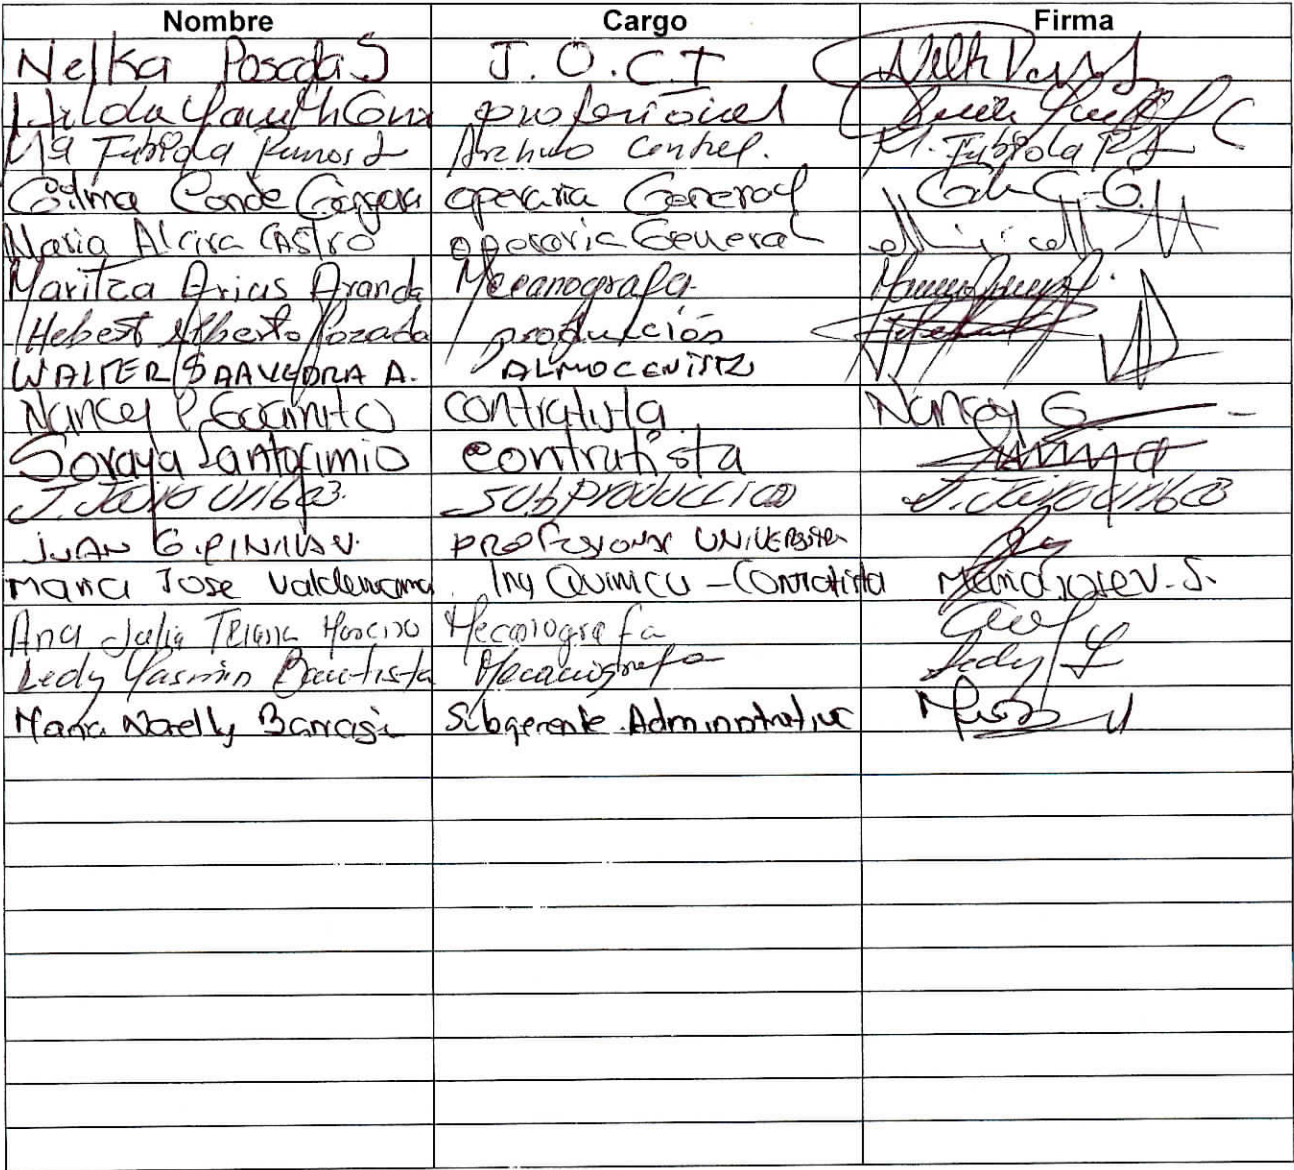 Nombre Cargo Firma
Nelka Posada S J. O. C I
Hilda Yaneth profesional
Mª Fabiola Ramos L Archivo Central. M. Fabiola R L
Gilma Conde Gongora operaria General G. C. G.
Maria Alcira CASTRO operaria General
Maritza Arias Aranda Mecanografa
Hebest Alberto Pozada producción
WALTER SAAVEDRA A. ALMOCENISTA
Nancy P. Guarnito contratista Nancy G
Soraya Santofimio contratista
J. Jairo Uribe B. SUBPRODUCCION J. Jairo Uribe B
JUAN G. PINILLA V. PROFESIONAL UNIVERSITA
Maria Jose Valderrama Ing Quimica - Contratista Maria Jose V. S.
Ana Julia TRIANA Mecanografa
Ledy Yasmin Bautista Mecanografa Ledy
Maria Norelly Barragan Subgerente Administrativa